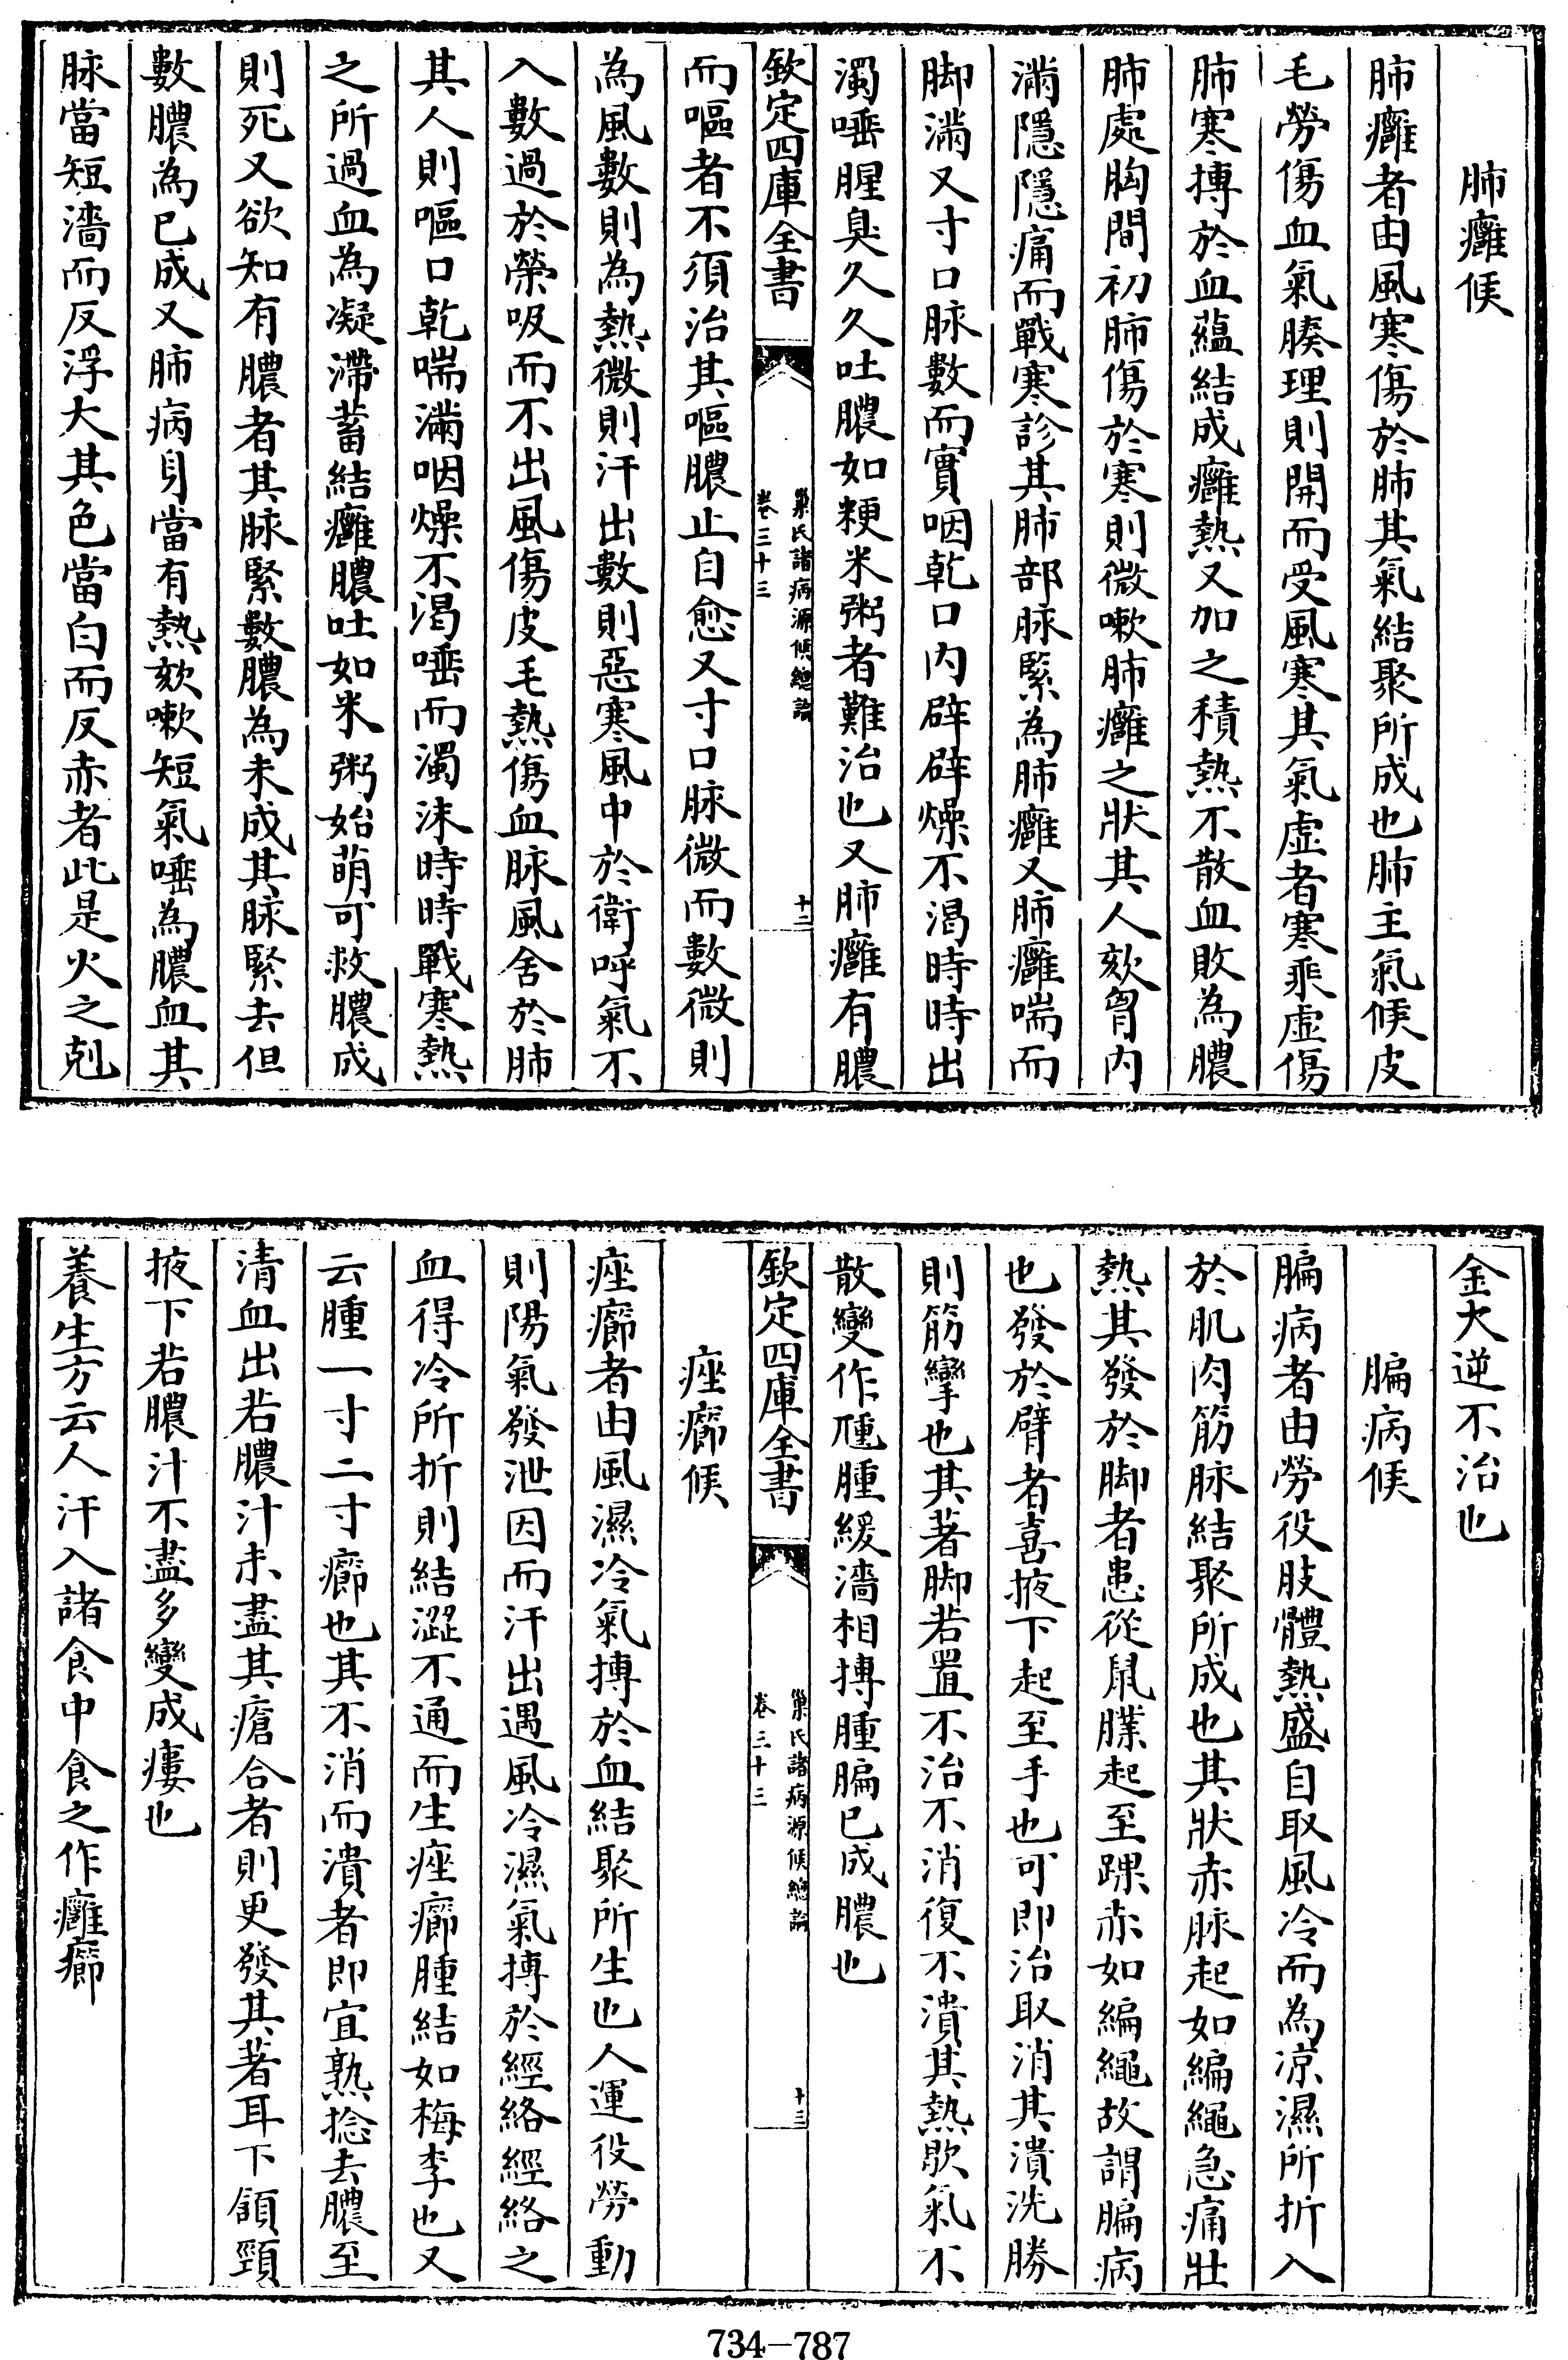 肺癰候
肺癰者由風寒傷於肺其氣結聚所成也肺主氣候皮
毛勞傷血氣腠理則開而受風寒其氣虛者寒乘虛傷
肺寒搏於血蘊結成癰熱又加之積熱不散血敗為膿
肺處胸間初肺傷於寒則微嗽肺癰之狀其人欬胷内
滿隱隱痛而戰寒診其肺部脉緊為肺癰又肺癰喘而
脚滿又寸口脉數而實咽乾口内辟辟燥不渴時時出
濁唾腥臭久久吐膿如粳米粥者難治也又肺癰有膿
欽定四庫全書
巢氏諸病源候總論
卷三十三
十二
而嘔者不須治其嘔膿止自愈又寸口脉微而數微則
為風數則為熱微則汗出數則惡寒風中於衛呼氣不
入數過於榮吸而不出風傷皮毛熱傷血脉風舍於肺
其人則嘔口乾喘滿咽燥不渴唾而濁沫時時戰寒熱
之所過血為凝滯蓄結癰膿吐如米粥始萌可救膿成
則死又欲知有膿者其脉緊數膿為未成其脉緊去但
數膿為已成又肺病身當有熱欬嗽短氣唾為膿血其
脉當短濇而反浮大其色當白而反赤者此是火之剋
金大逆不治也
牑病候
牑病者由勞役肢體熱盛自取風冷而為凉濕所折入
於肌肉筋脉結聚所成也其狀赤脉起如編繩急痛壯
熱其發於脚者患從鼠䐈起至踝赤如編繩故謂牑病
也發於臂者喜掖下起至手也可即治取消其潰洗勝
則筋攣也其著脚若置不治不消復不潰其熱歇氣不
散變作𤺄腫緩濇相搏腫牑已成膿也
欽定四庫全書
巢氏諸病源候總論
卷三十三
十三
痤癤候
痤癤者由風濕冷氣搏於血結聚所生也人運役勞動
則陽氣發泄因而汗出遇風冷濕氣搏於經絡經絡之
血得冷所折則結澀不通而生痤癤腫結如梅李也又
云腫一寸二寸癤也其不消而潰者即宜熟捻去膿至
清血出若膿汁未盡其瘡合者則更發其著耳下頷頸
掖下若膿汁不盡多變成瘻也
養生方云人汗入諸食中食之作癰癤
734—787